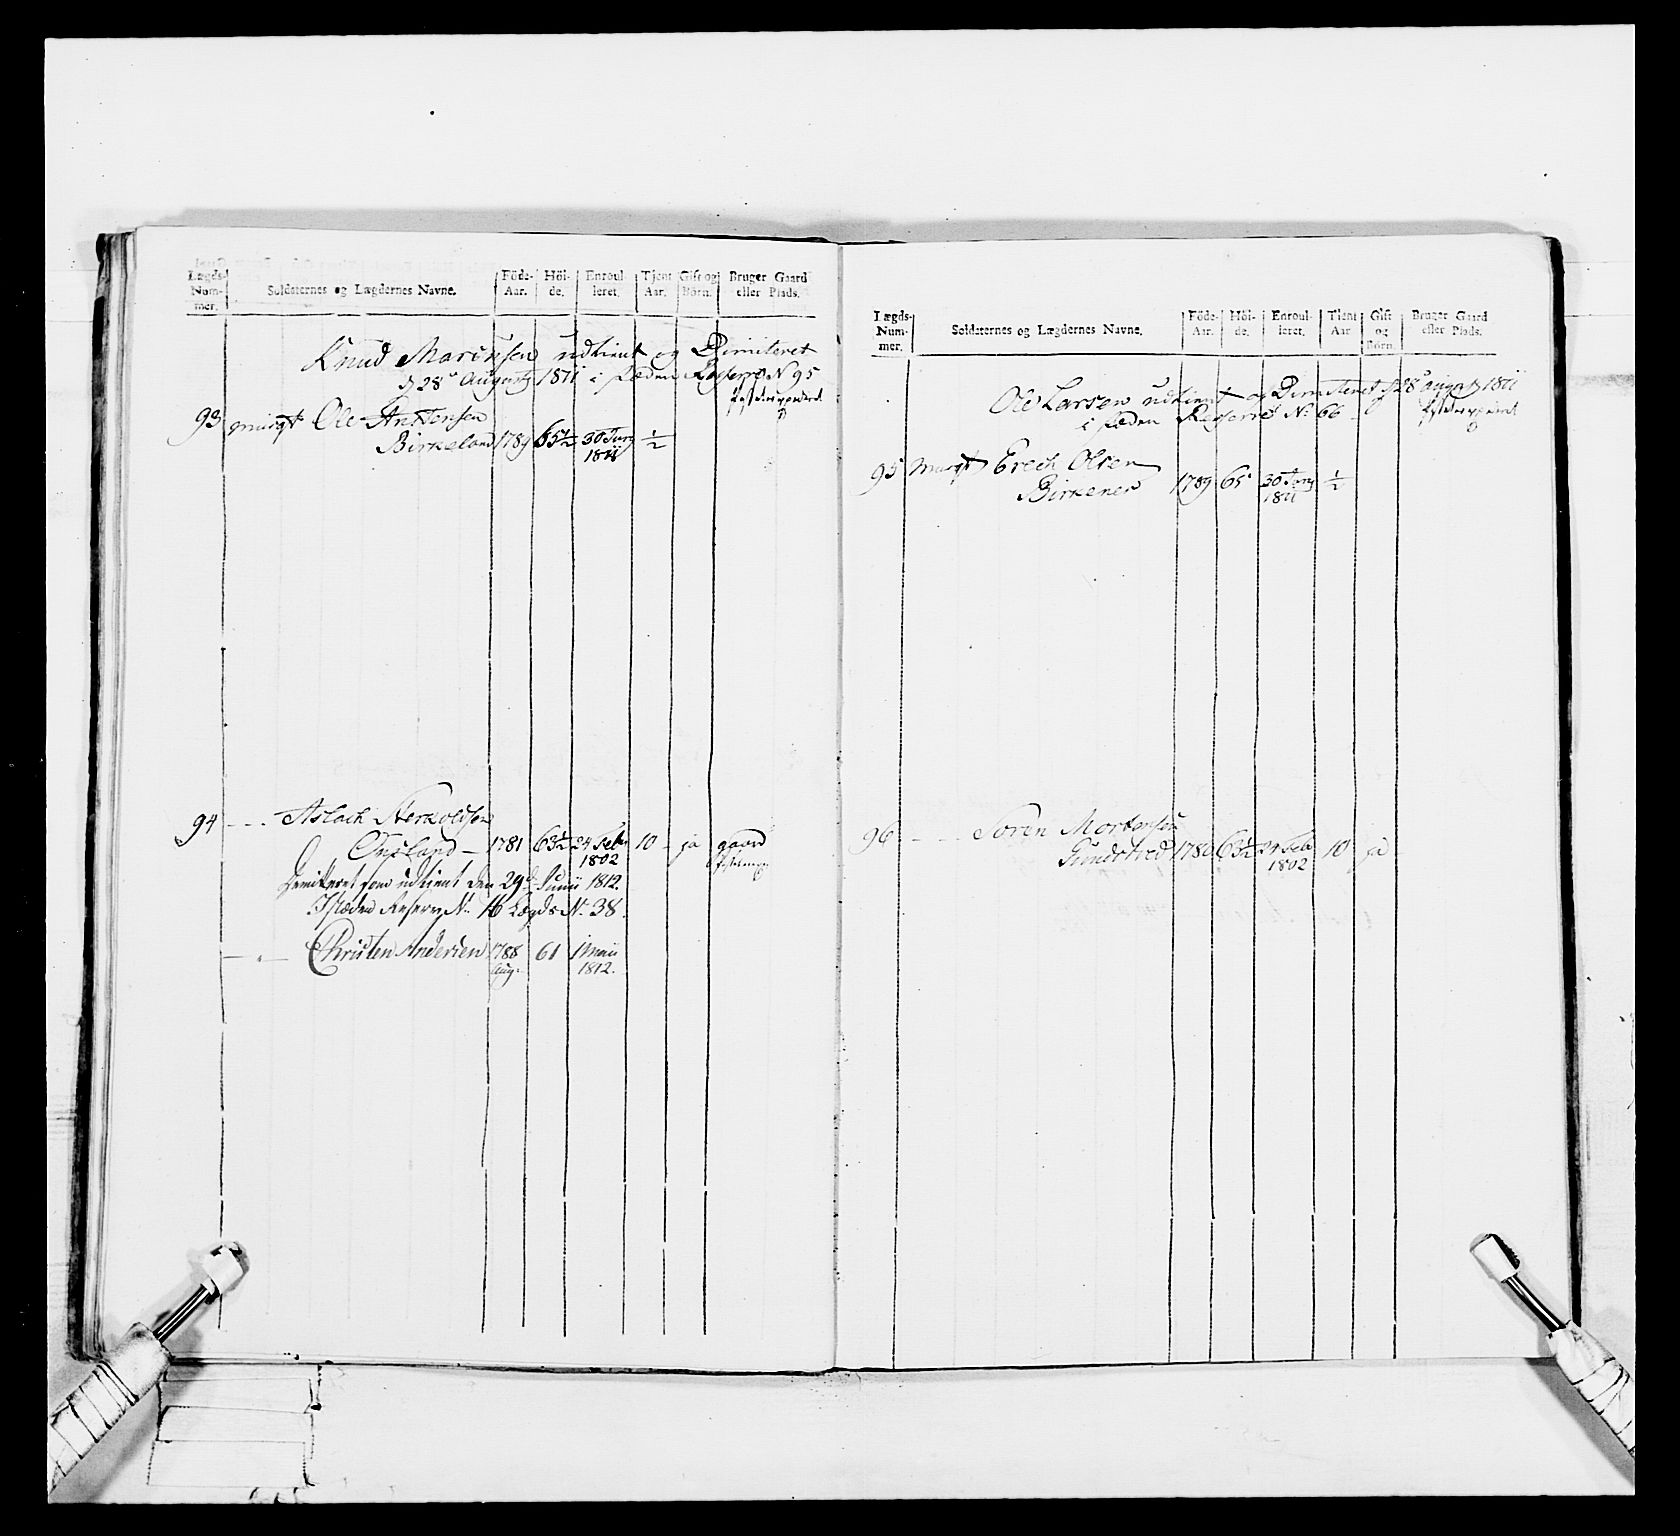 Lægds-Num-mer. Soldaternes og Lægdernes Navne. Föde-Aar. Höi-de. Enroul-leret. Tjent Aar. Gift og Börn. Bruger Gaard eller Plads.
Knud udtient og Dimiteret
28 Augusty 1811 i stæden Reserve N 95
93 Ole
Birkeland 1789 65½ 30 Juny 1811 ½
94 Aslach
1781 63½ 24 Febr 1802 10 ja gaard
Demitteret som udtient den 29d Junii 1812.
Istæden Reserv N. 16 Lægds N. 38.
Christen Andersen 1788 Aug. 61 1 Maii 1812.
Lægds-Num-mer. Soldaternes og Lægdernes Navne. Föde-Aar. Höi-de. Enroul-leret. Tient Aar Gift og Börn. Bruger Gaard eller Plads.
Ole Larsen udtient og Dimiteret 28 august 1811
i stæden Reserve N. 66
95 Erech Olsen
Birkenes 1789 65 30 Juny 1811 ½
96 Sören Mortensen
63½ 24 Feb 1802 10 ja